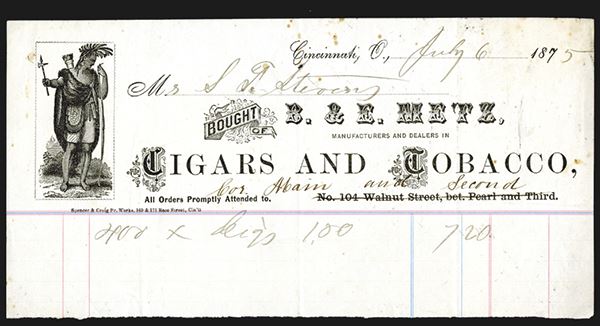 Cincinnati, O., July 6 1875
Mr S. F. Stevens
BOUGHT OF B. & E. METZ,
MANUFACTURERS AND DEALERS IN
CIGARS AND TOBACCO,
Cor. Main and Second
All Orders Promptly Attended to. No. 104 Walnut Street, bet. Pearl and Third.
Spencer & Craig Pr. Works, 169 & 171 Race Street, Cin'ti
400 x Cigs 1,00 7 20